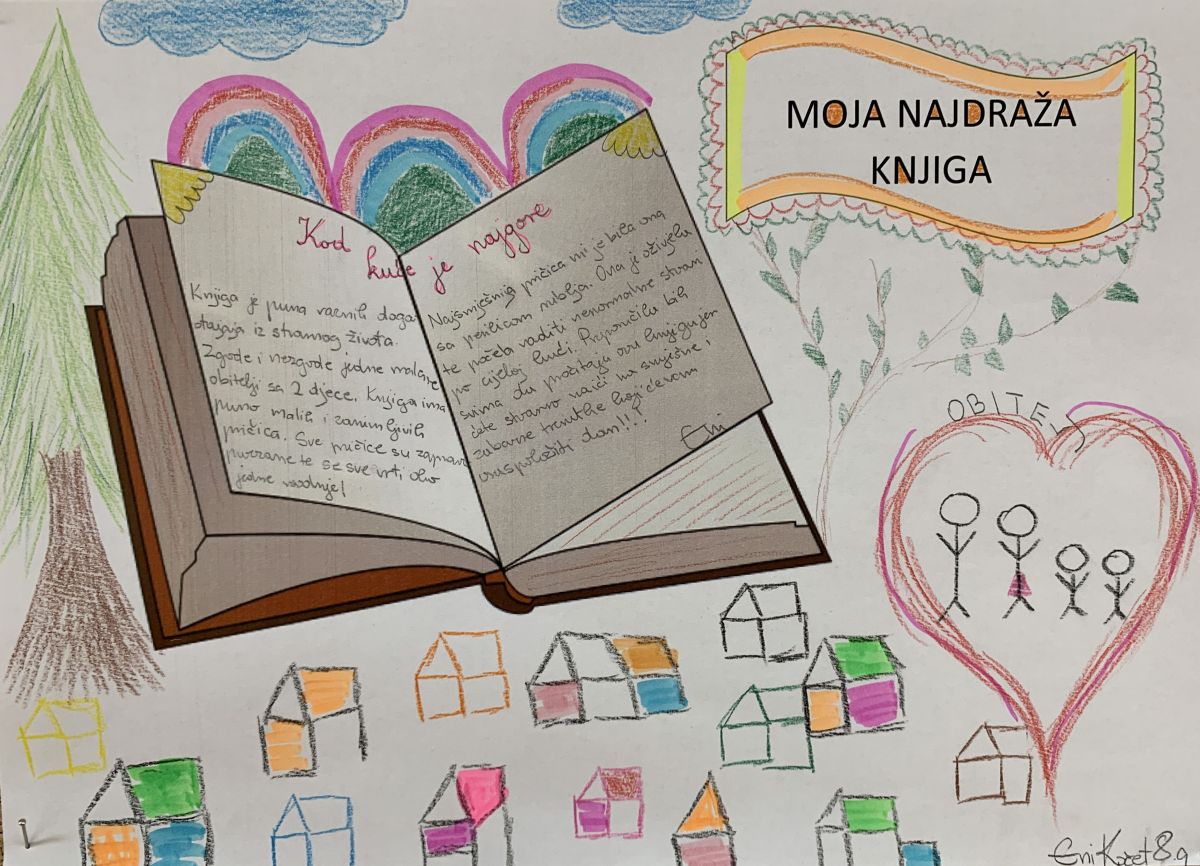 MOJA NAJDRAŽA
KNJIGA
Kod kuće je najgore
Knjiga je puna raznih doga
đanja iz stvarnog života.
Zgode i nezgode jedne malene
obitelji sa 2 djece. Knjiga ima
puno malih i zanimljivih
pričica. Sve pričice su zapravo
povezane te se sve vrti oko
jedne
Najsmješnija pričica mi je bila ona
sa perilicom rublja. Ona je oživjela
te počela raditi nenormalne stvari
po cijeloj kući. Preporučila bih
svima da pročitaju ovu knjigu jer
ćete stvarno naići na smiješne i
zabavne trenutke koji će vam
uljepšati dan!!!
Eni
OBITELJ
Eni 8.a